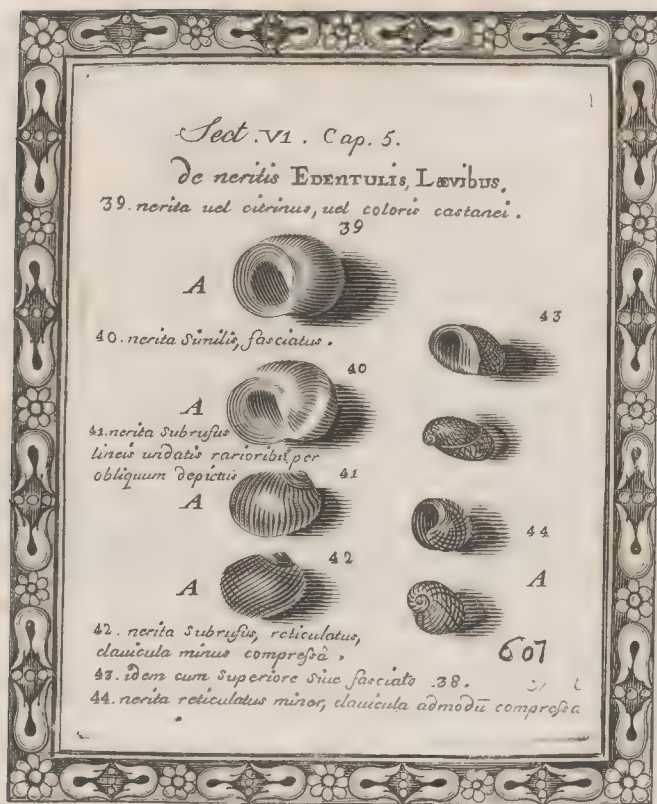 Sect. VI. Cap. 5.
De neritis EDENTULIS, LÆVIBUS.
39. nerita uel citrinus, uel coloris castanei.
39
A
40. nerita Similis, fasciatus.
43
40
A
41. nerita Subrufus
lineis undatis rarioribus per
obliquum depictus
41
A
44
42
A
A
42. nerita Subrufus, reticulatus,
clauicula minus compreſsâ.
607
43. idem cum Superiore Siue fasciato .38.
44. nerita reticulatus minor, clauicula admodū compreſsa